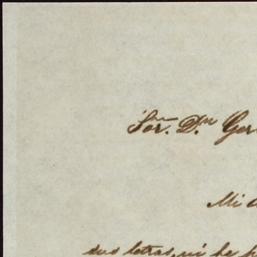 Sor. Dn. Ger
Mi
dos letras, ni he